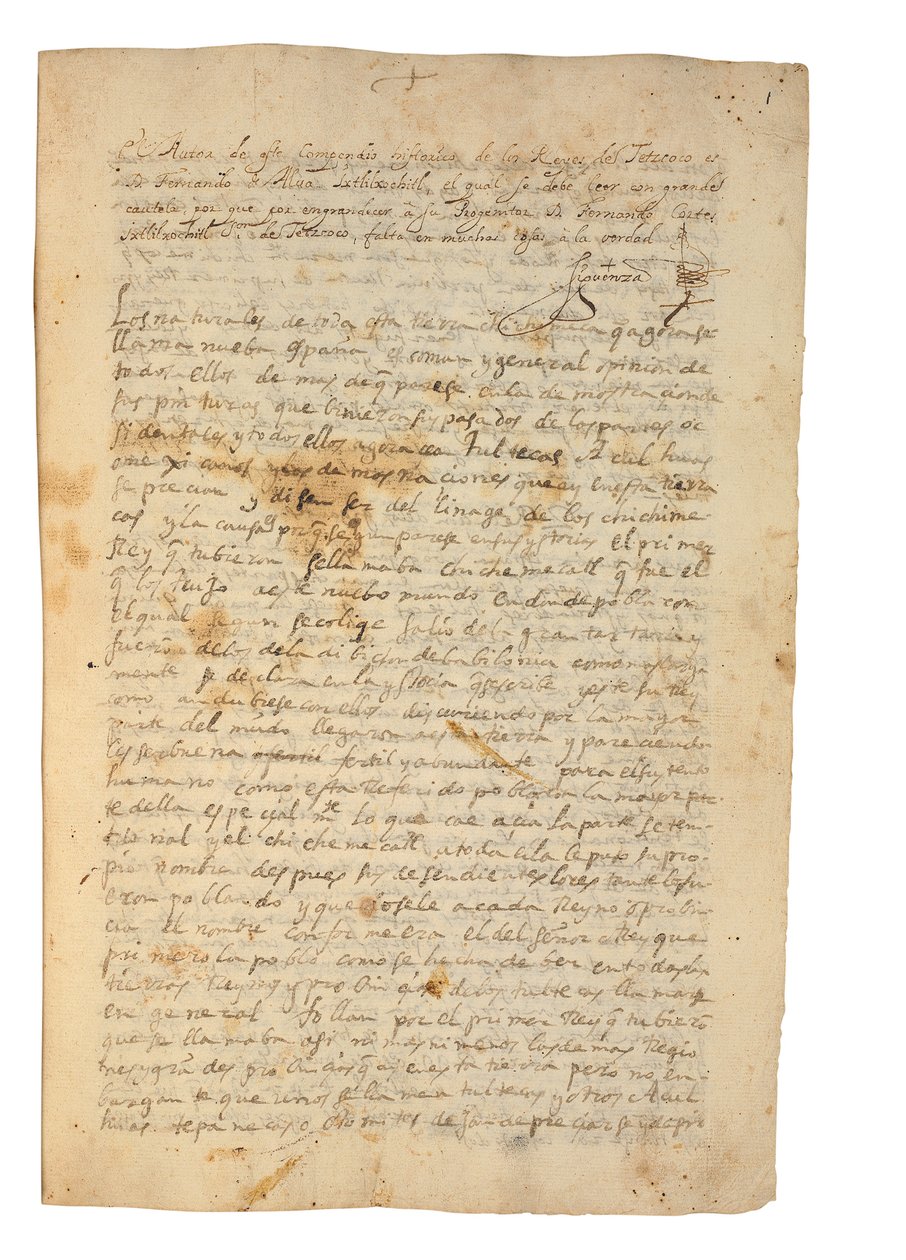 1
El Autor de este Compendio historico de los Reyes de Tetzcoco es
D. Fernando de Alva Ixtlilxochitl, el qual se debe leer con grande
cautela, por que por engrandecer â su Progenitor D. Fernando Cortes
Ixtlilxochitl Sor. de Tetzcoco, falta en muchas cosas â la verdad
Siguenza
Los naturales de toda esta tierra chichimeca q agora se
llama nueba españa es comun y general opinion de
todos ellos de mas de q̃ parese en la demostracion de
sus pinturas que binieron sus pasados de los partes oc
sidentales y todos ellos agora tultecas Aculhuas
mexicanos y las demas naciones que ay en esta tierra
se precian y disen ser del linage de los chichime
cas y la causa es porq̃ segun parese en sus ystorias el primer
Rey q̃ tubieron se llamaba chichemecatl q̃ fue el
q̃ los trujo a este nuebo mundo en donde poblaron
el qual segun se colige salio de la gran tartaria y
fuerõ de los de la dibicion de babilonia como mas larga
mente se declara en la ystoria q̃ se escribe y este su Rey
como andubiese con ellos discurriendo por la mayor
parte del mũdo llegaron a esta tierra y pareciendo
les ser buena fertil y abundante para el sustento
humano como esta Referido poblaron la mayor par-
te della especialmte lo que cae acia la parte seten-
trional y el chichemecatl a toda ella le puso su pro-
pio nombre despues sus desendientes lo restante lo fu-
eron poblando y quedosele a cada Reyno o probin-
cia el nombre conforme era el del señor o Rey que
primero la poblo como se hecha de ber en todas las
tierras Reynos y probinçias de los tultecas llamarse
en general tollan por el primer Rey q̃ tubierõ
que se llamaba asi ni mas ni menos las demas Regio
nes y grãdes probinçias q̃ ay en esta tierra pero no en-
bargante que unos se llaman tultecas y otros Acul
huas tepanecas o otomites dejan de preciarse y de